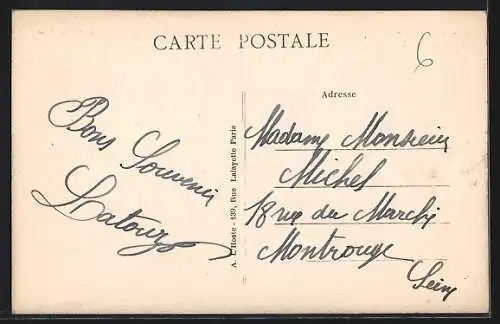 CARTE POSTALE
6
Adresse
Bons
Souvenir
Latouz
A. L'Hoste - 139, Rue Lafayette Paris
Madame Monsieur
Michel
18 rue du Marché
Montrouge
Seine